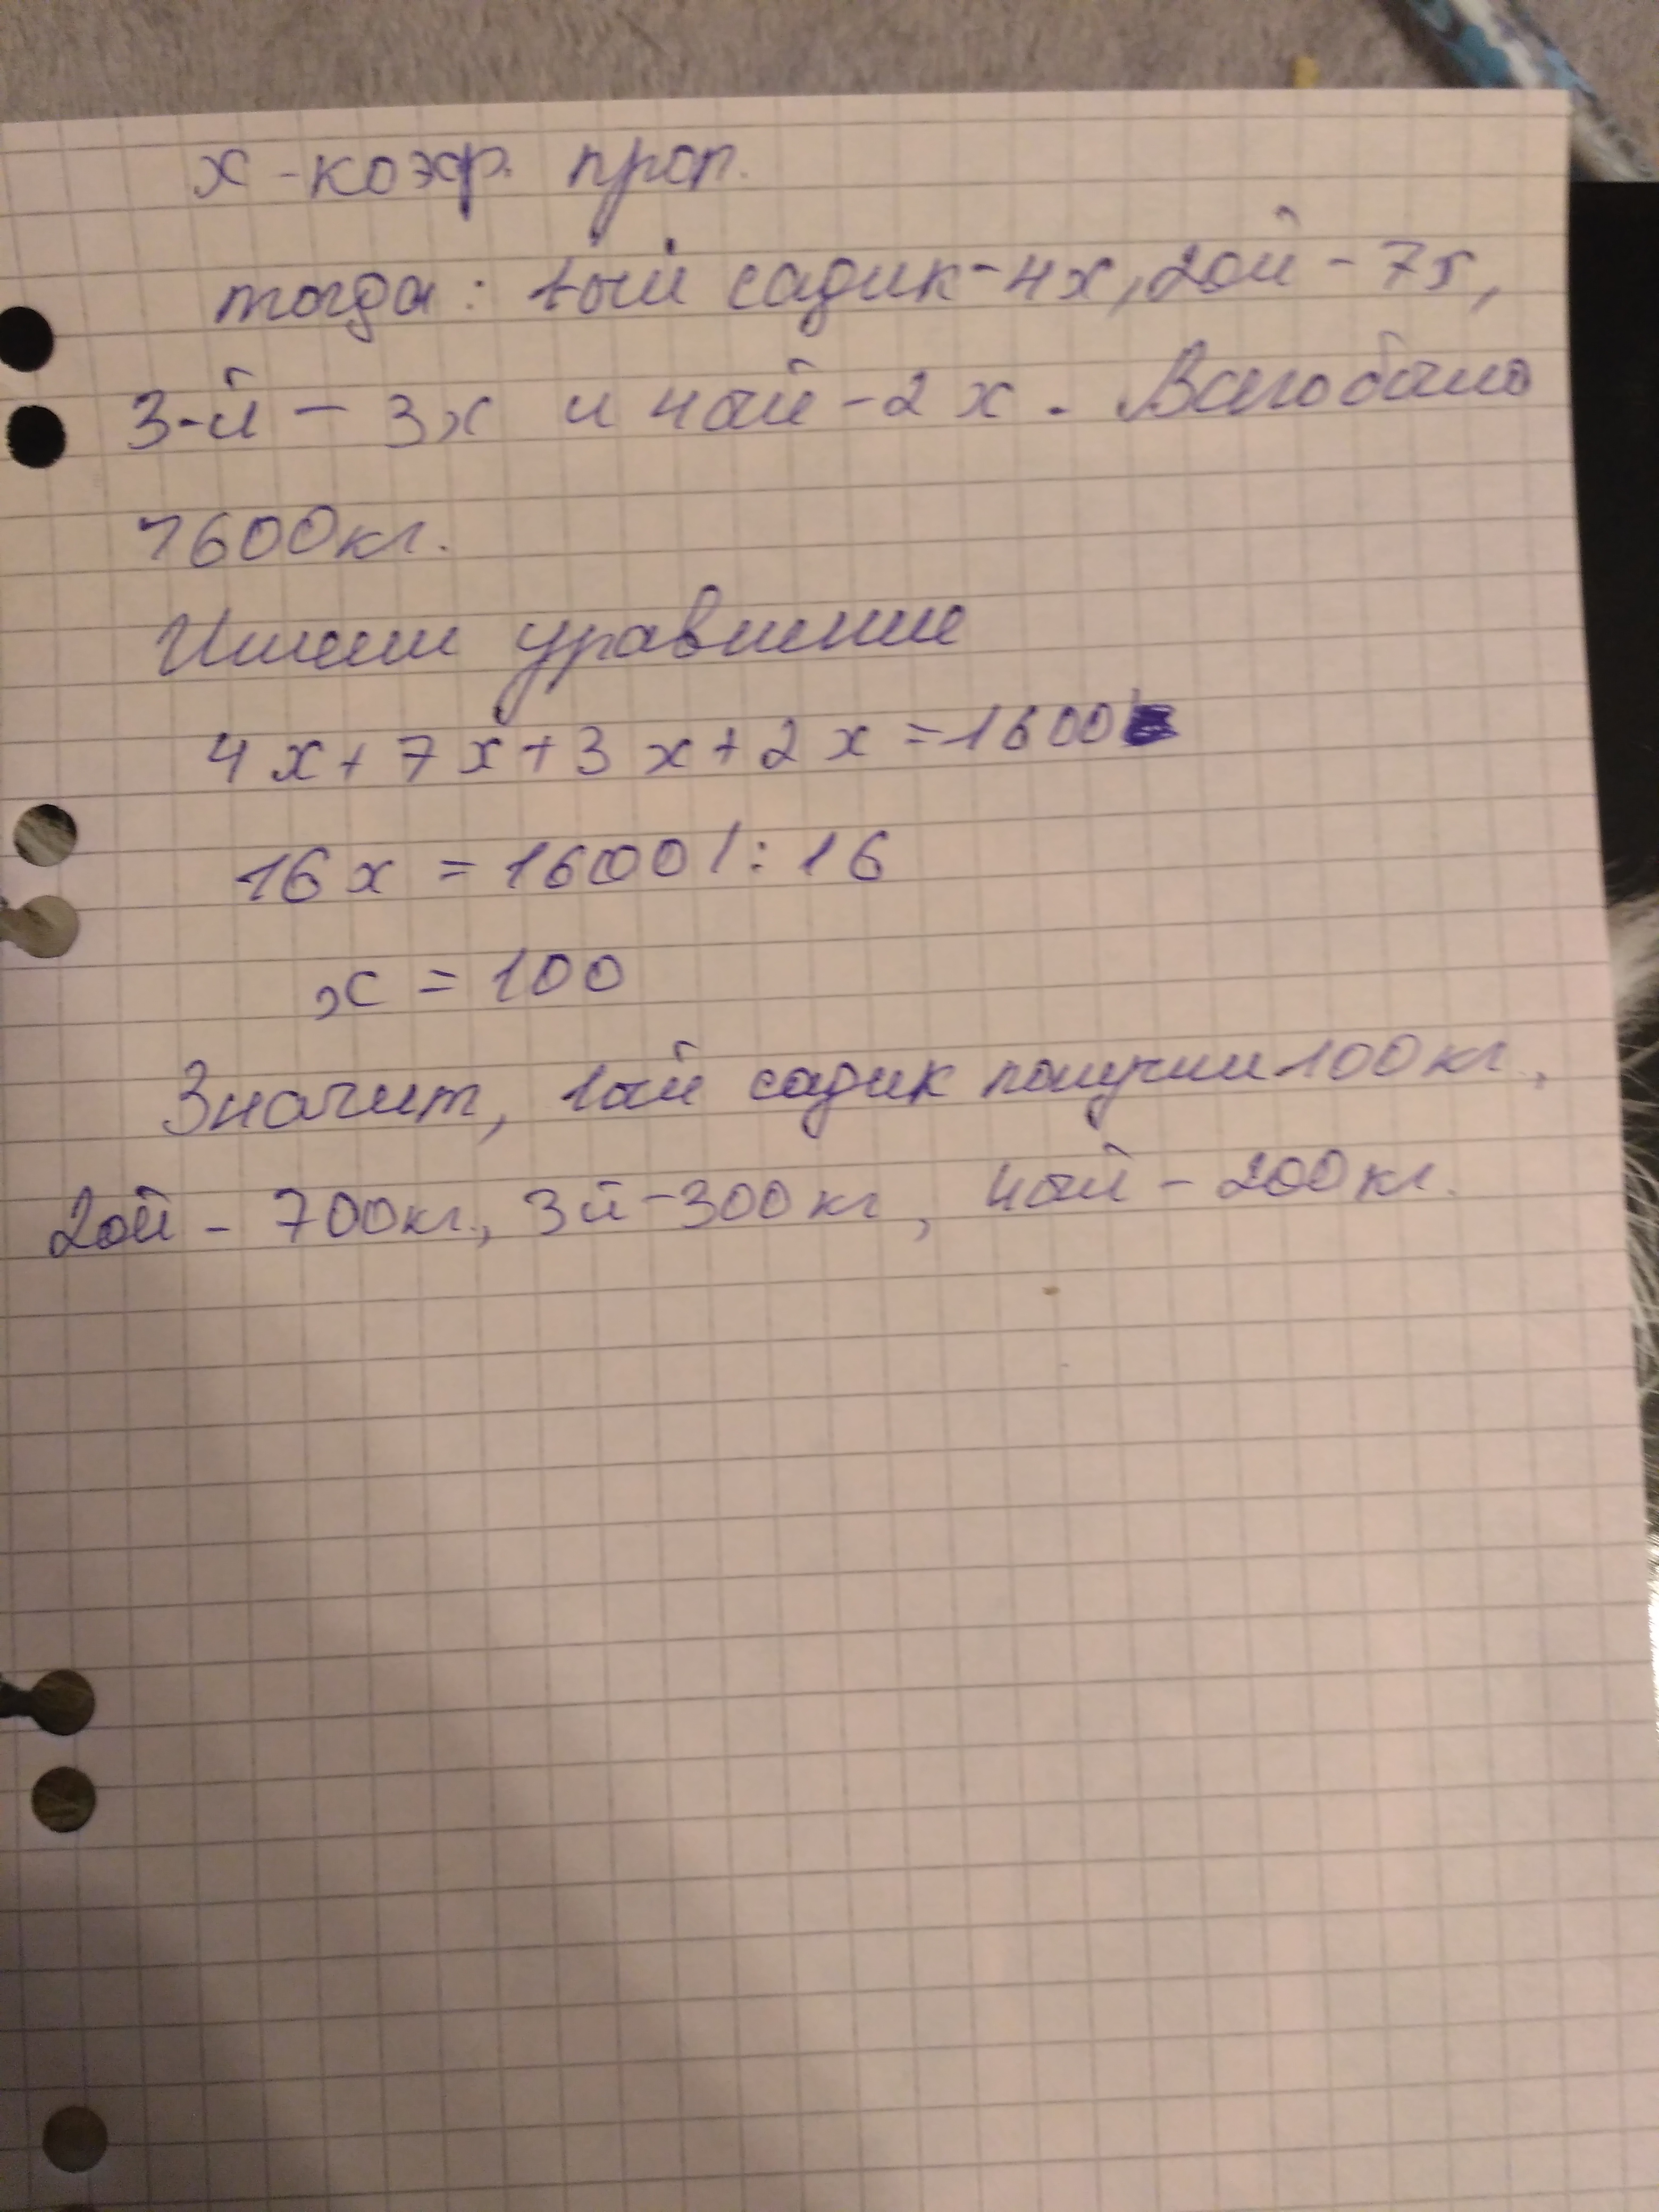 х - коэф. проп.
тогда: 1ый садик - 4х, 2ой - 7х,
3-й - 3х и 4ый - 2х. Всего было
1600кг.
Имеем уравнение
4х + 7х + 3х + 2х = 1600
16х = 1600 / : 16
х = 100
Значит, 1ый садик получил 100кг,
2ой - 700кг., 3й - 300кг, 4ый - 200кг.